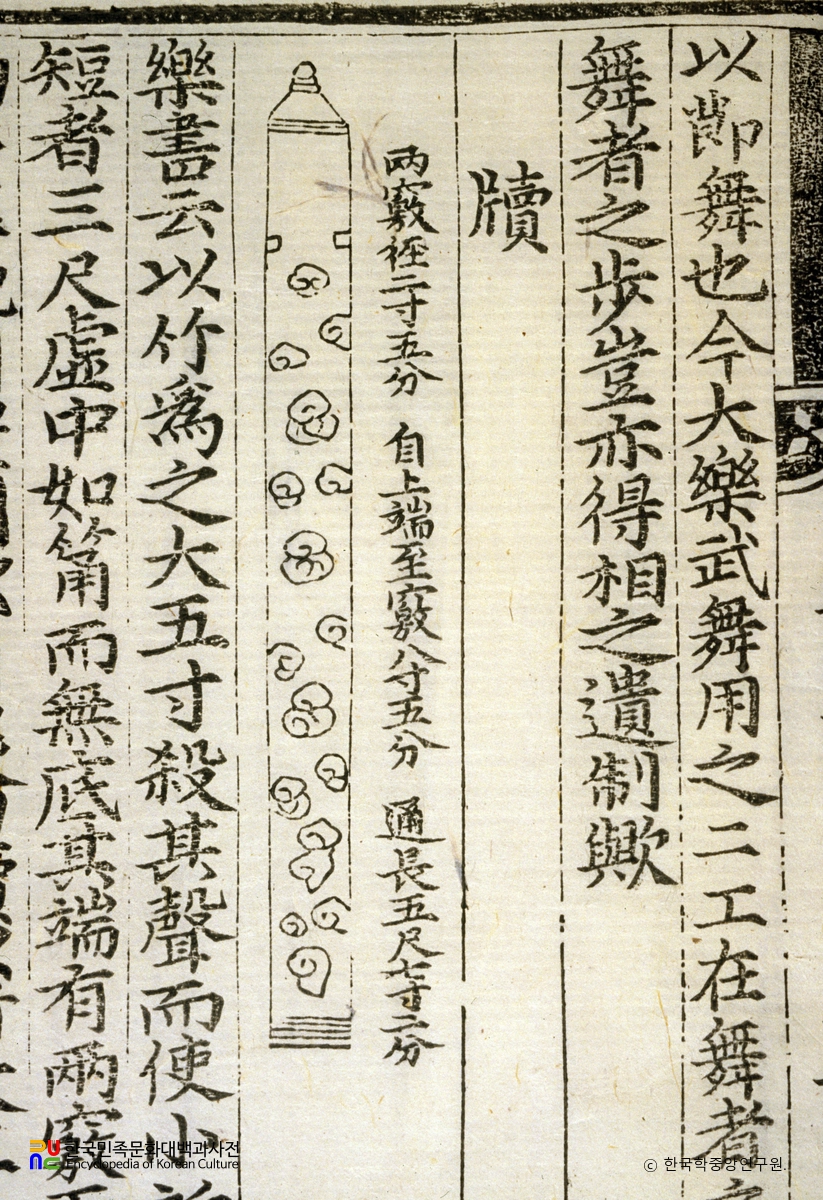 以節舞也今大樂武舞用之二工在舞者
舞者之步豈亦得相之遺制歟
牘
兩竅徑二寸五分 自上端至竅八寸五分 通長五尺七寸二分
樂書云以竹爲之大五寸殺其聲而使小
短者三尺虛中如筩而無底其端有兩竅
한국민족문화대백과사전
Encyclopedia of Korean Culture
© 한국학중앙연구원.